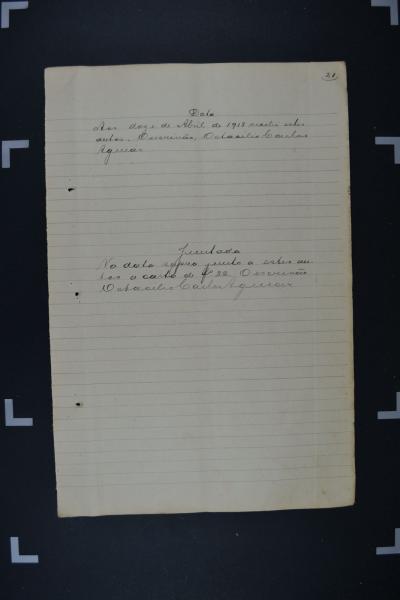 21
Data
Aos doze de Abril de 1913 recebi estes
autos. O escrivão, Octacilio Carlos
Aguiar
Juntada
Na data supra junto a estes au
tos a carta de fs 22. O escrivão
Octacilio Carlos Aguiar